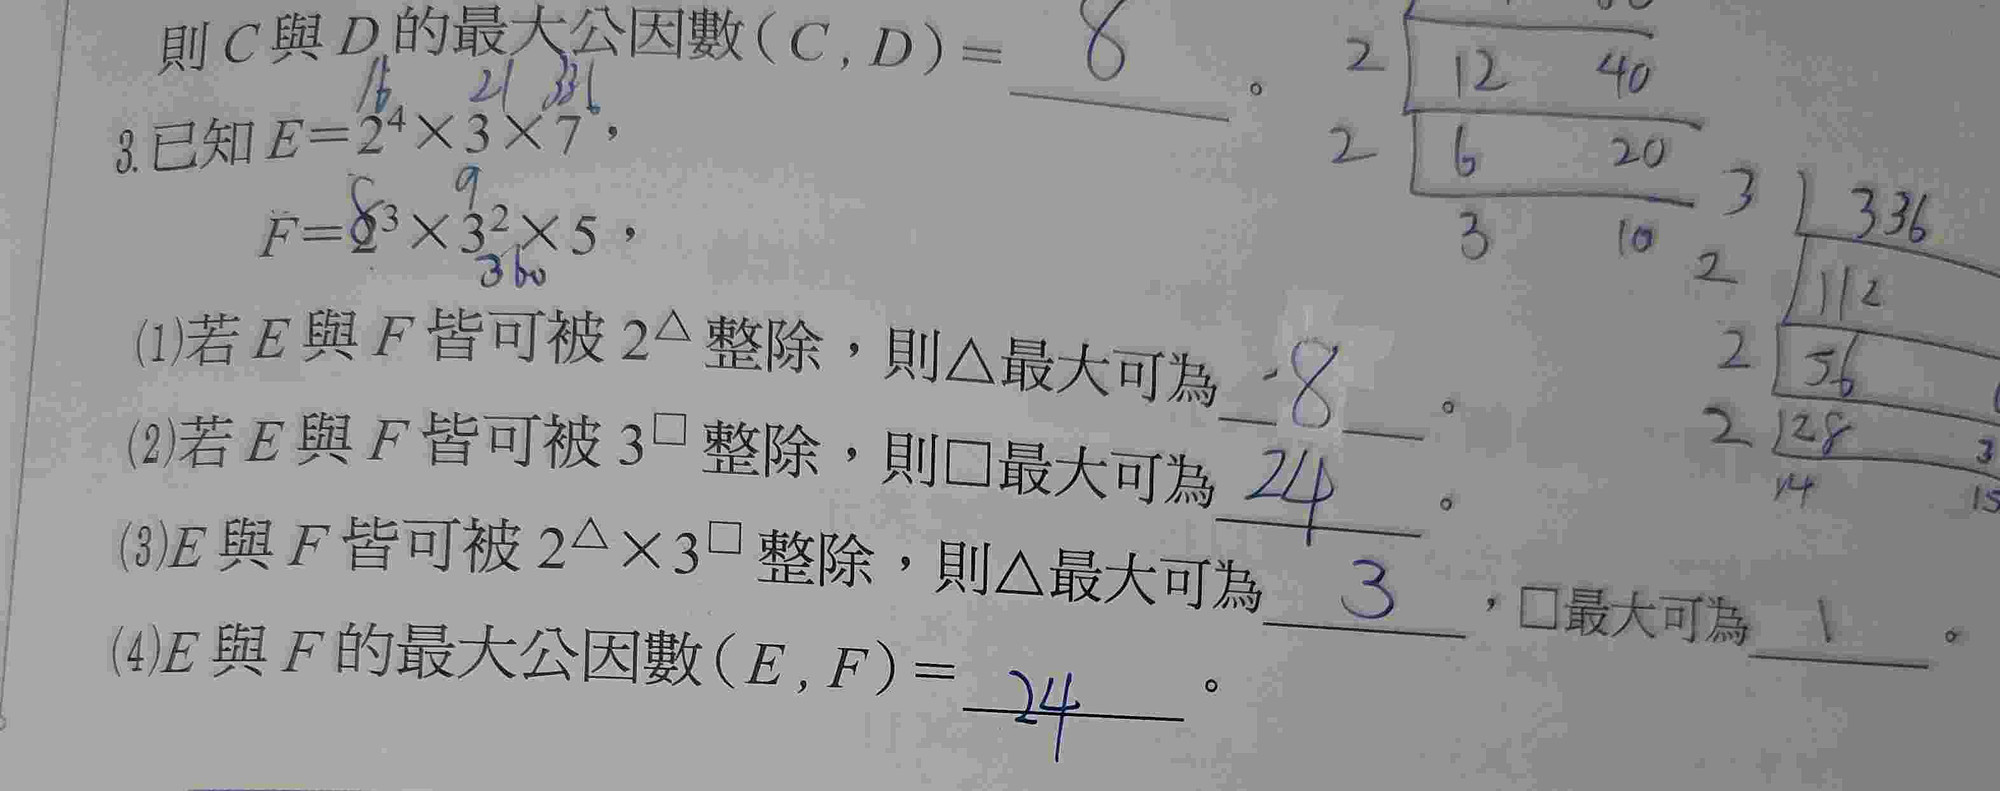 則C與D的最大公因數(C,D)= 8 。
16 21 336
3.已知E=2⁴×3×7,
8 9
F=2³×3²×5,
360
(1)若E與F皆可被2^△整除,則△最大可為 8 。
(2)若E與F皆可被3^□整除,則□最大可為 24 。
(3)E與F皆可被2^△×3^□整除,則△最大可為 3 ,□最大可為 1 。
(4)E與F的最大公因數(E,F)= 24 。
2 12 40
2 6 20
3 10
3 336
2 112
2 56
2 28 3
14 15